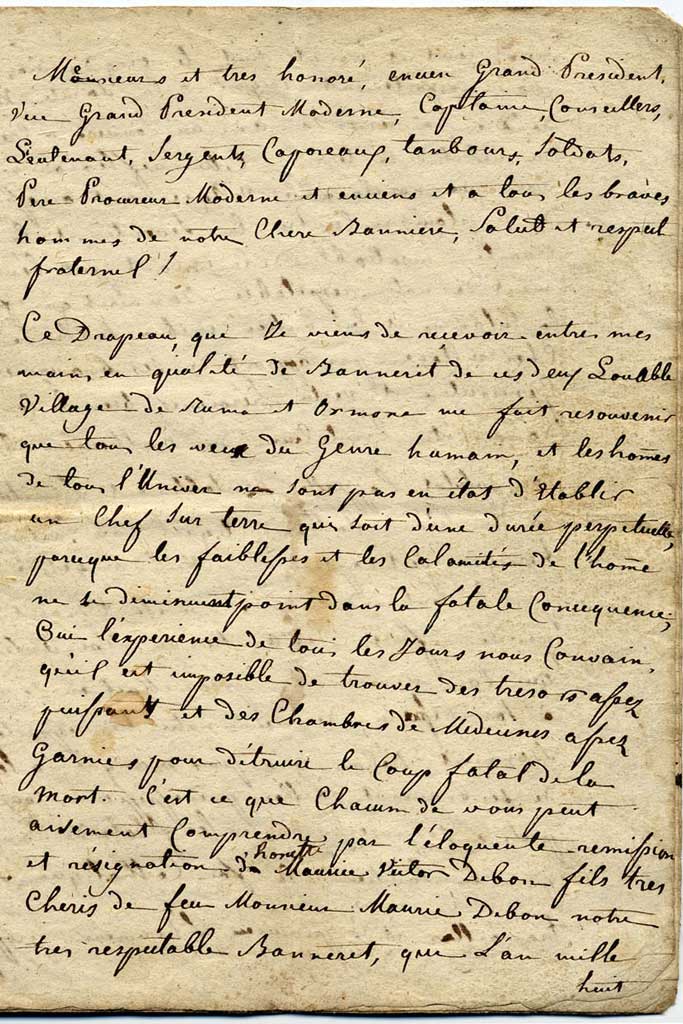 Messieurs et tres honoré, encien Grand President,
Vice Grand President Moderne, Capitaine, Conseillers,
Leutenant, Sergents, Caporeaux, tanbours, Soldats,
Pere Procureur Moderne et enciens et a tous les braves
hommes de notre Chere Banniere, Salut et respect
fraternel!
Ce Drapeau, que Je viens de recevoir entres mes
mains, en qualité de Banneret de ces deux Louable
Village de Suma et Ormone me fait resouvenir
que tous les veux du Genre humain, et les hom̄es
de tous l'Univer ne sont pas en état d'Etablir
un Chef sur terre qui soit d'une durée perpetuelle,
parceque les faiblesses et les Calamités de l'hom̄e
ne se diminuent point dans la fatale Concequence;
Oui l'experience de tous les Jours nous Convain,
qu'il est imposible de trouver des tresors assez
puissants et des Chambres de Medecines assez
Garnies pour détruire le Coup fatal de la
mort. C'est ce que Chacun de vous peut
aisement Comprendre par l'éloquente remission
et résignation de honette Maurice Victor Debon fils tres
Cheris de feu Monsieur Maurice Debon notre
tres respectable Banneret, que L'an mille
huit